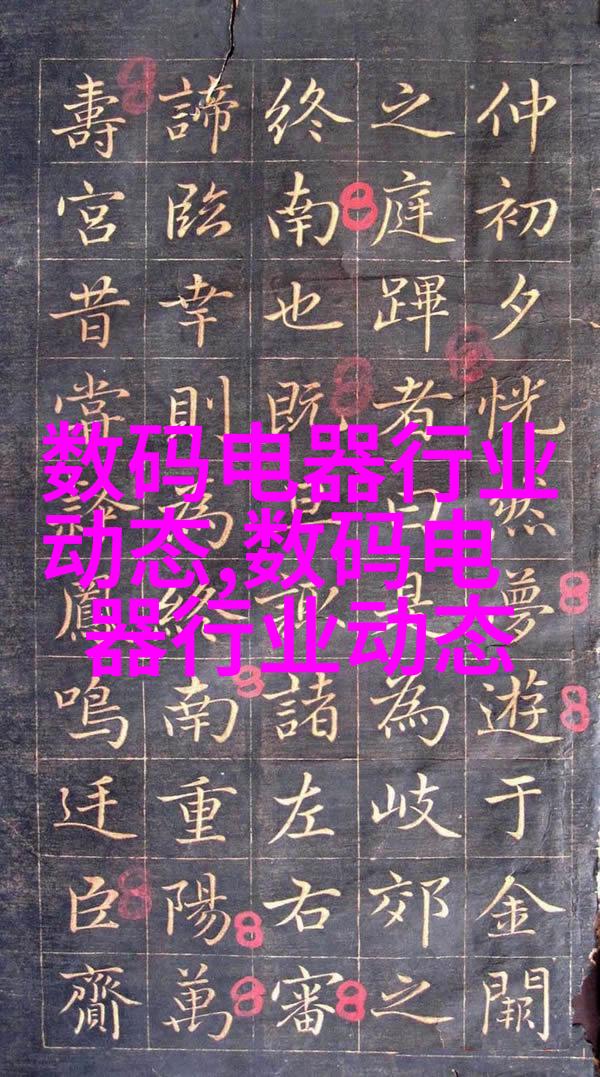 仲初夕恍然夢遊于金闕
之庭蹕者曰是為岐郊之
終南也既諸左右審
諦臨幸則為終南重陽萬
壽宮昔常鳳鳴臣齎
数码电器行业
动态,数码电
器行业动态